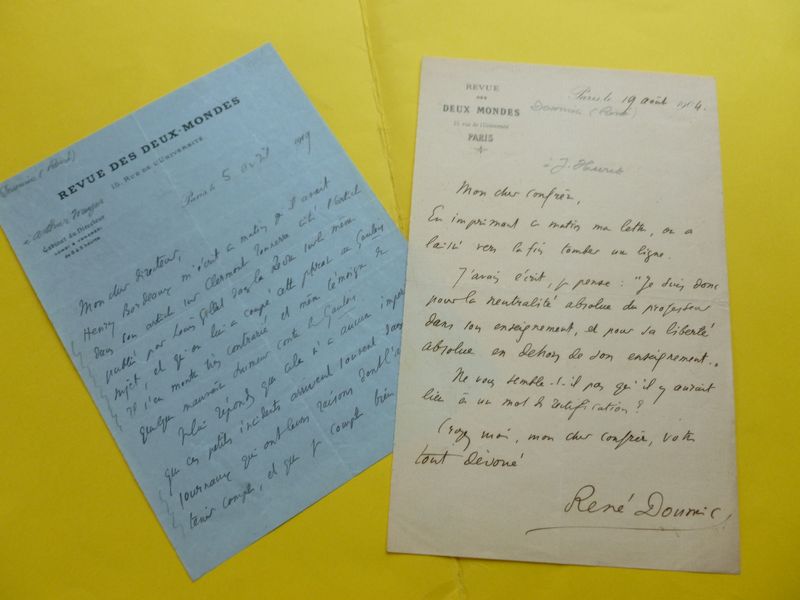 REVUE DES DEUX-MONDES
15, RUE DE L'UNIVERSITÉ
Paris le 5 avril 1919
à Arthur Meyer
Cabinet du Directeur
Mon cher Directeur,
Henry Bordeaux m'écrit ce matin qu'il avait
dans son article sur Clermont Tonnerre cité l'article
publié par Louis Gillet dans la Revue sur le même
sujet, et qu'on lui a coupé cette phrase au Gaulois
Il s'en montre très contrarié et même témoigne de
quelque mauvaise humeur contre le Gaulois.
Je lui réponds que cela n'a aucune
que ces petits incidents arrivent souvent dans
journaux qui ont leurs raisons dont il
tenir compte, et que je compte bien
REVUE
DES
DEUX MONDES
15 rue de l'Université
PARIS
Paris le 19 août 1904.
Doumic (René)
à J.
Mon cher confrère,
En imprimant ce matin ma lettre, on a
laissé vers la fin tomber une ligne.
J'avais écrit, je pense : "Je suis donc
pour la neutralité absolue du professeur
dans son enseignement, et pour sa liberté
absolue en dehors de son enseignement".
Ne vous semble-t-il pas qu'il y aurait
lieu à un mot de rectification ?
Croyez moi, mon cher confrère, votre
tout dévoué
René Doumic